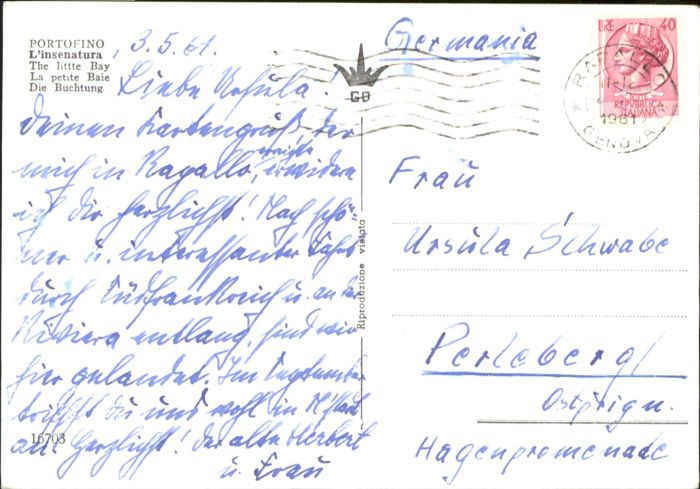 PORTOFINO
L'insenatura
The little Bay
La petite Baie
Die Buchtung
, 3.5.61.
Liebe Ursula!
Deinen Kartengruß, der
mich in Rapallo, erreichte
erwidere
ich dir herzlichst! Nach schö-
ner u. interessanter Fahrt
durch Südfrankreich u. an der
Riviera entlang, sind wir
hier gelandet. Im September
triffst du uns wohl in
an. Herzlichst! Der alte Herbert
u. Frau
16703
Riproduzione vietata
Germania
LIRE 40
POSTE
REPVBBLICA
ITALIANA
RAPALLO
1961
GENOVA
Frau
Ursula Schwabe
Perleberg/
Ostprign.
Hagenpromenade